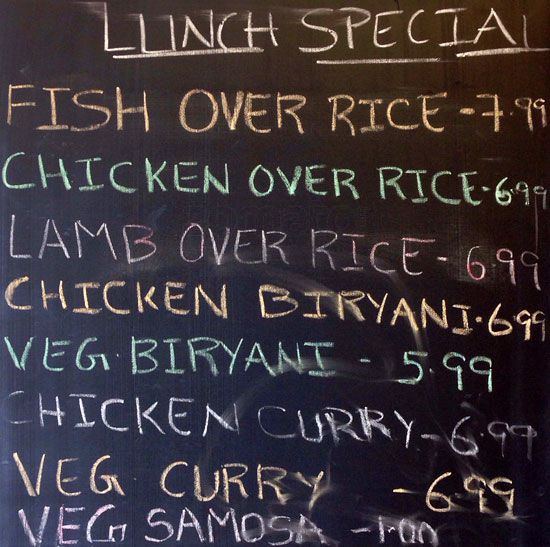 LUNCH SPECIAL
FISH OVER RICE - 7.99
CHICKEN OVER RICE - 6.99
LAMB OVER RICE - 6.99
CHICKEN BIRYANI - 6.99
VEG. BIRYANI - 5.99
CHICKEN CURRY - 6.99
VEG CURRY - 6.99
VEG SAMOSA - 1.00